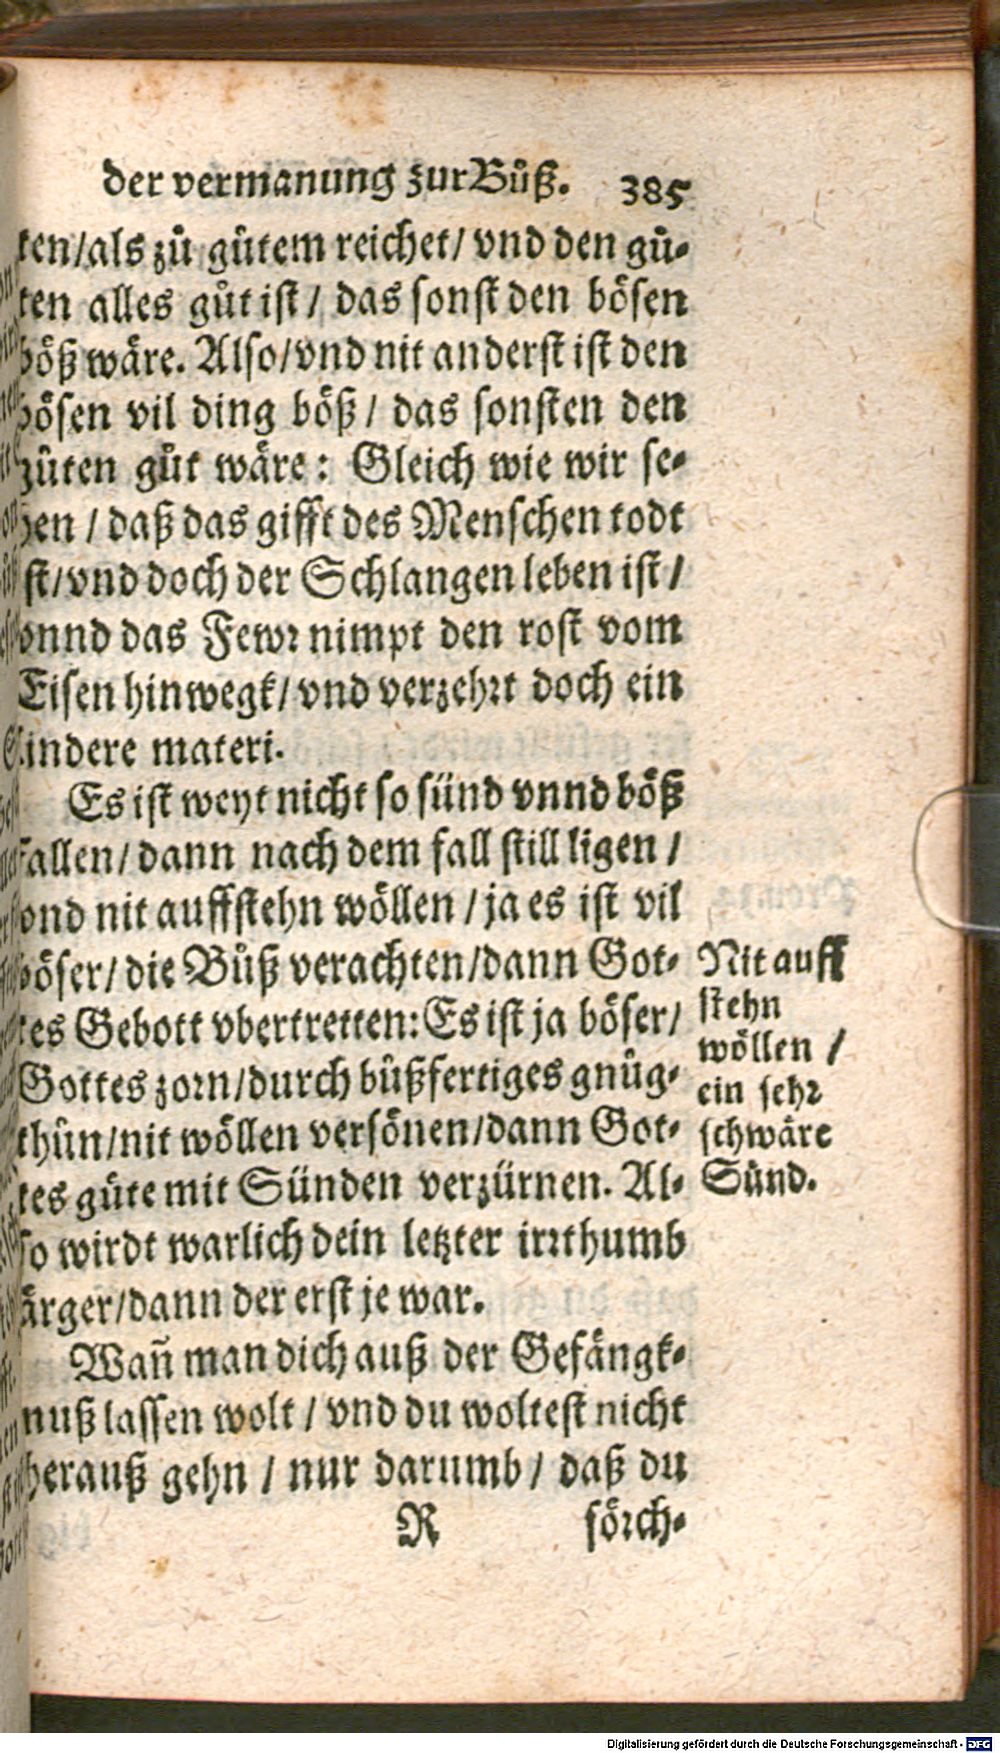 der vermanung zur Bůß. 385
ten/als zů gůtem reichet/ vnd den gů-
ten alles gůt ist / das sonst den bösen
böß wäre. Also/vnd nit anderst ist den
bösen vil ding böß / das sonsten den
gůten gůt wäre: Gleich wie wir se-
hen / daß das gifft des Menschen todt
ist/vnd doch der Schlangen leben ist /
vnnd das Fewr nimpt den rost vom
Eisen hinwegk/ vnd verzehrt doch ein
andere materi.
Es ist weyt nicht so sünd vnnd böß
fallen/ dann nach dem fall still ligen /
vnd nit auffstehn wöllen / ja es ist vil
böser/ die Bůß verachten/dann Got-
tes Gebott vbertretten: Es ist ja böser/
Gottes zorn/durch bůßfertiges gnůg-
thůn/nit wöllen versönen/dann Got-
tes güte mit Sünden verzürnen. Al-
so wirdt warlich dein letzter irrthumb
ärger/dann der erst je war.
Wañ man dich auß der Gefängk-
nuß lassen wolt / vnd du woltest nicht
herauß gehn / nur darumb / daß du
R förch-
Nit auff
stehn
wöllen /
ein sehr
schwäre
Sünd.
Digitalisierung gefördert durch die Deutsche Forschungsgemeinschaft - DFG